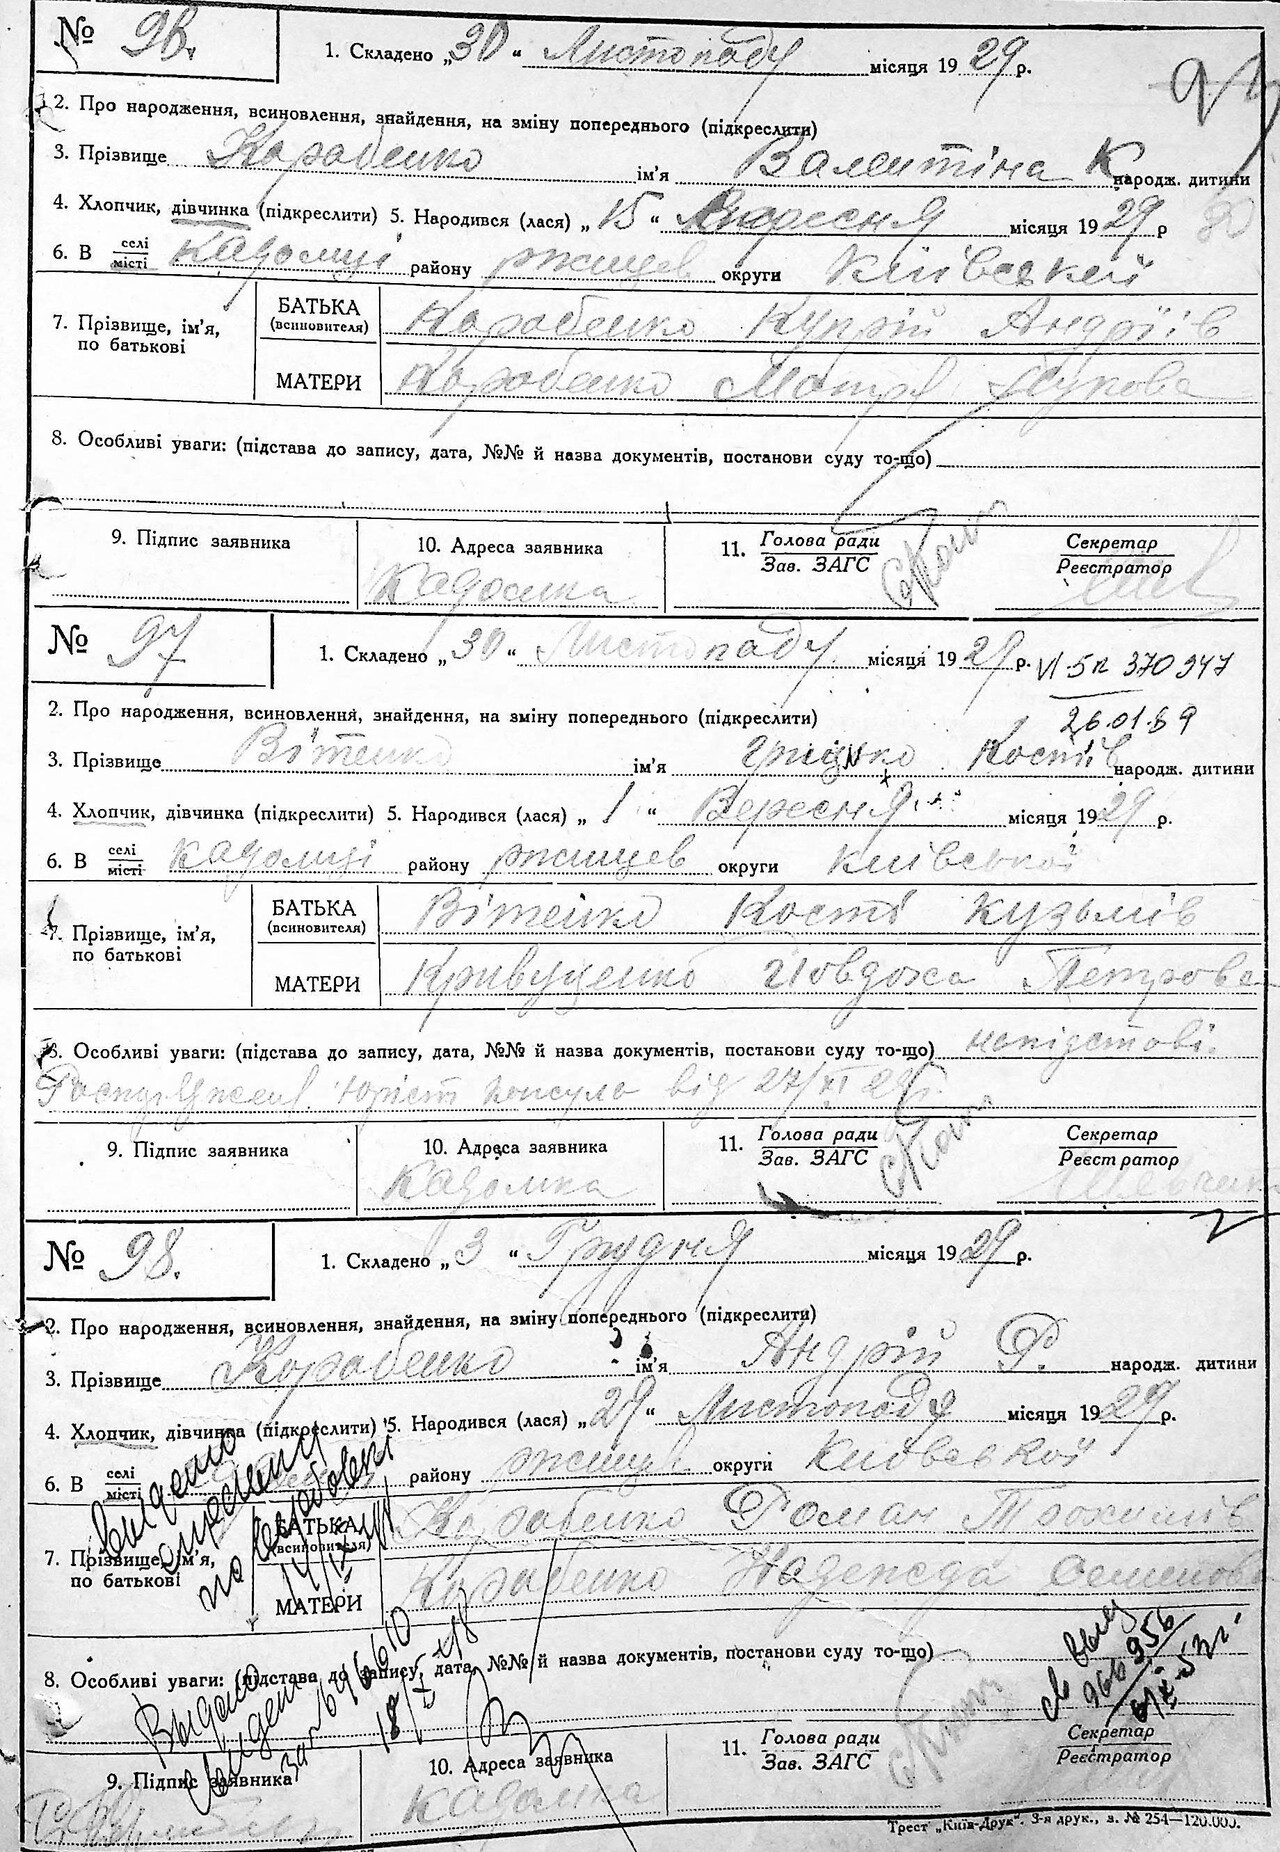 № 96. 1. Складено „30“ Листопаду місяця 1929 р.
2. Про народження, всиновлення, знайдення, на зміну попереднього (підкреслити)
3. Прізвище Карабенко ім'я Валентіна К народж. дитини
4. Хлопчик, дівчинка (підкреслити) 5. Народився (лася) „15“ Вересня місяця 1929 р
6. В селі/місті Кадомці району ржищев округи Київської
7. Прізвище, ім'я, по батькові
БАТЬКА (всиновителя) Карабенко Купрій Андріїв
МАТЕРИ Карабенко Мотря Лукова
8. Особливі уваги: (підстава до запису, дата, №№ й назва документів, постанови суду то-що)
9. Підпис заявника 10. Адреса заявника 11. Голова ради Секретар
Зав. ЗАГС Реєстратор
Кадомка
№ 97 1. Складено „30“ Листопаду місяця 1929 р.
370947
2. Про народження, всиновлення, знайдення, на зміну попереднього (підкреслити)
26.01.89
3. Прізвище Вітенко ім'я Грицько Костів народж. дитини
4. Хлопчик, дівчинка (підкреслити) 5. Народився (лася) „1“ Вересня місяця 1929 р.
6. В селі/місті Кадомці району ржищев округи київської
7. Прізвище, ім'я, по батькові
БАТЬКА (всиновителя) Вітенко Кості Кузьмів
МАТЕРИ Кривуценко Йовдоха Петрова
8. Особливі уваги: (підстава до запису, дата, №№ й назва документів, постакови суду то-що) на підстові
юріст консула від 27/XI 29р.
9. Підпис заявника 10. Адреса заявника 11. Голова ради Секретар
Зав. ЗАГС Реєстратор
Кадомка
№ 98. 1. Складено „3“ Грудня місяця 1929 р.
2. Про народження, всиновлення, знайдення, на зміну попереднього (підкреслити)
3. Прізвище Карабенко ім'я Андрій Р. народж. дитини
4. Хлопчик, дівчинка (підкреслити) 5. Народився (лася) „29“ Листопада місяця 1929 р.
6. В селі/місті району ржищев округи Київської
7. Прізвище, ім'я, по батькові
БАТЬКА (всиновителя) Карабенко Роман Трохимів
МАТЕРИ Карабенко Надежда Семенова
8. Особливі уваги: (підстава до запису, дата, №№ й назва документів, постанови суду то-що)
Выдано
696610
966956
9. Підпис заявника 10. Адреса заявника 11. Голова ради Секретар
Зав. ЗАГС Реєстратор
Кадомка
Трест „Київ-Друк“. 3-я друк., з. № 254—120.000.